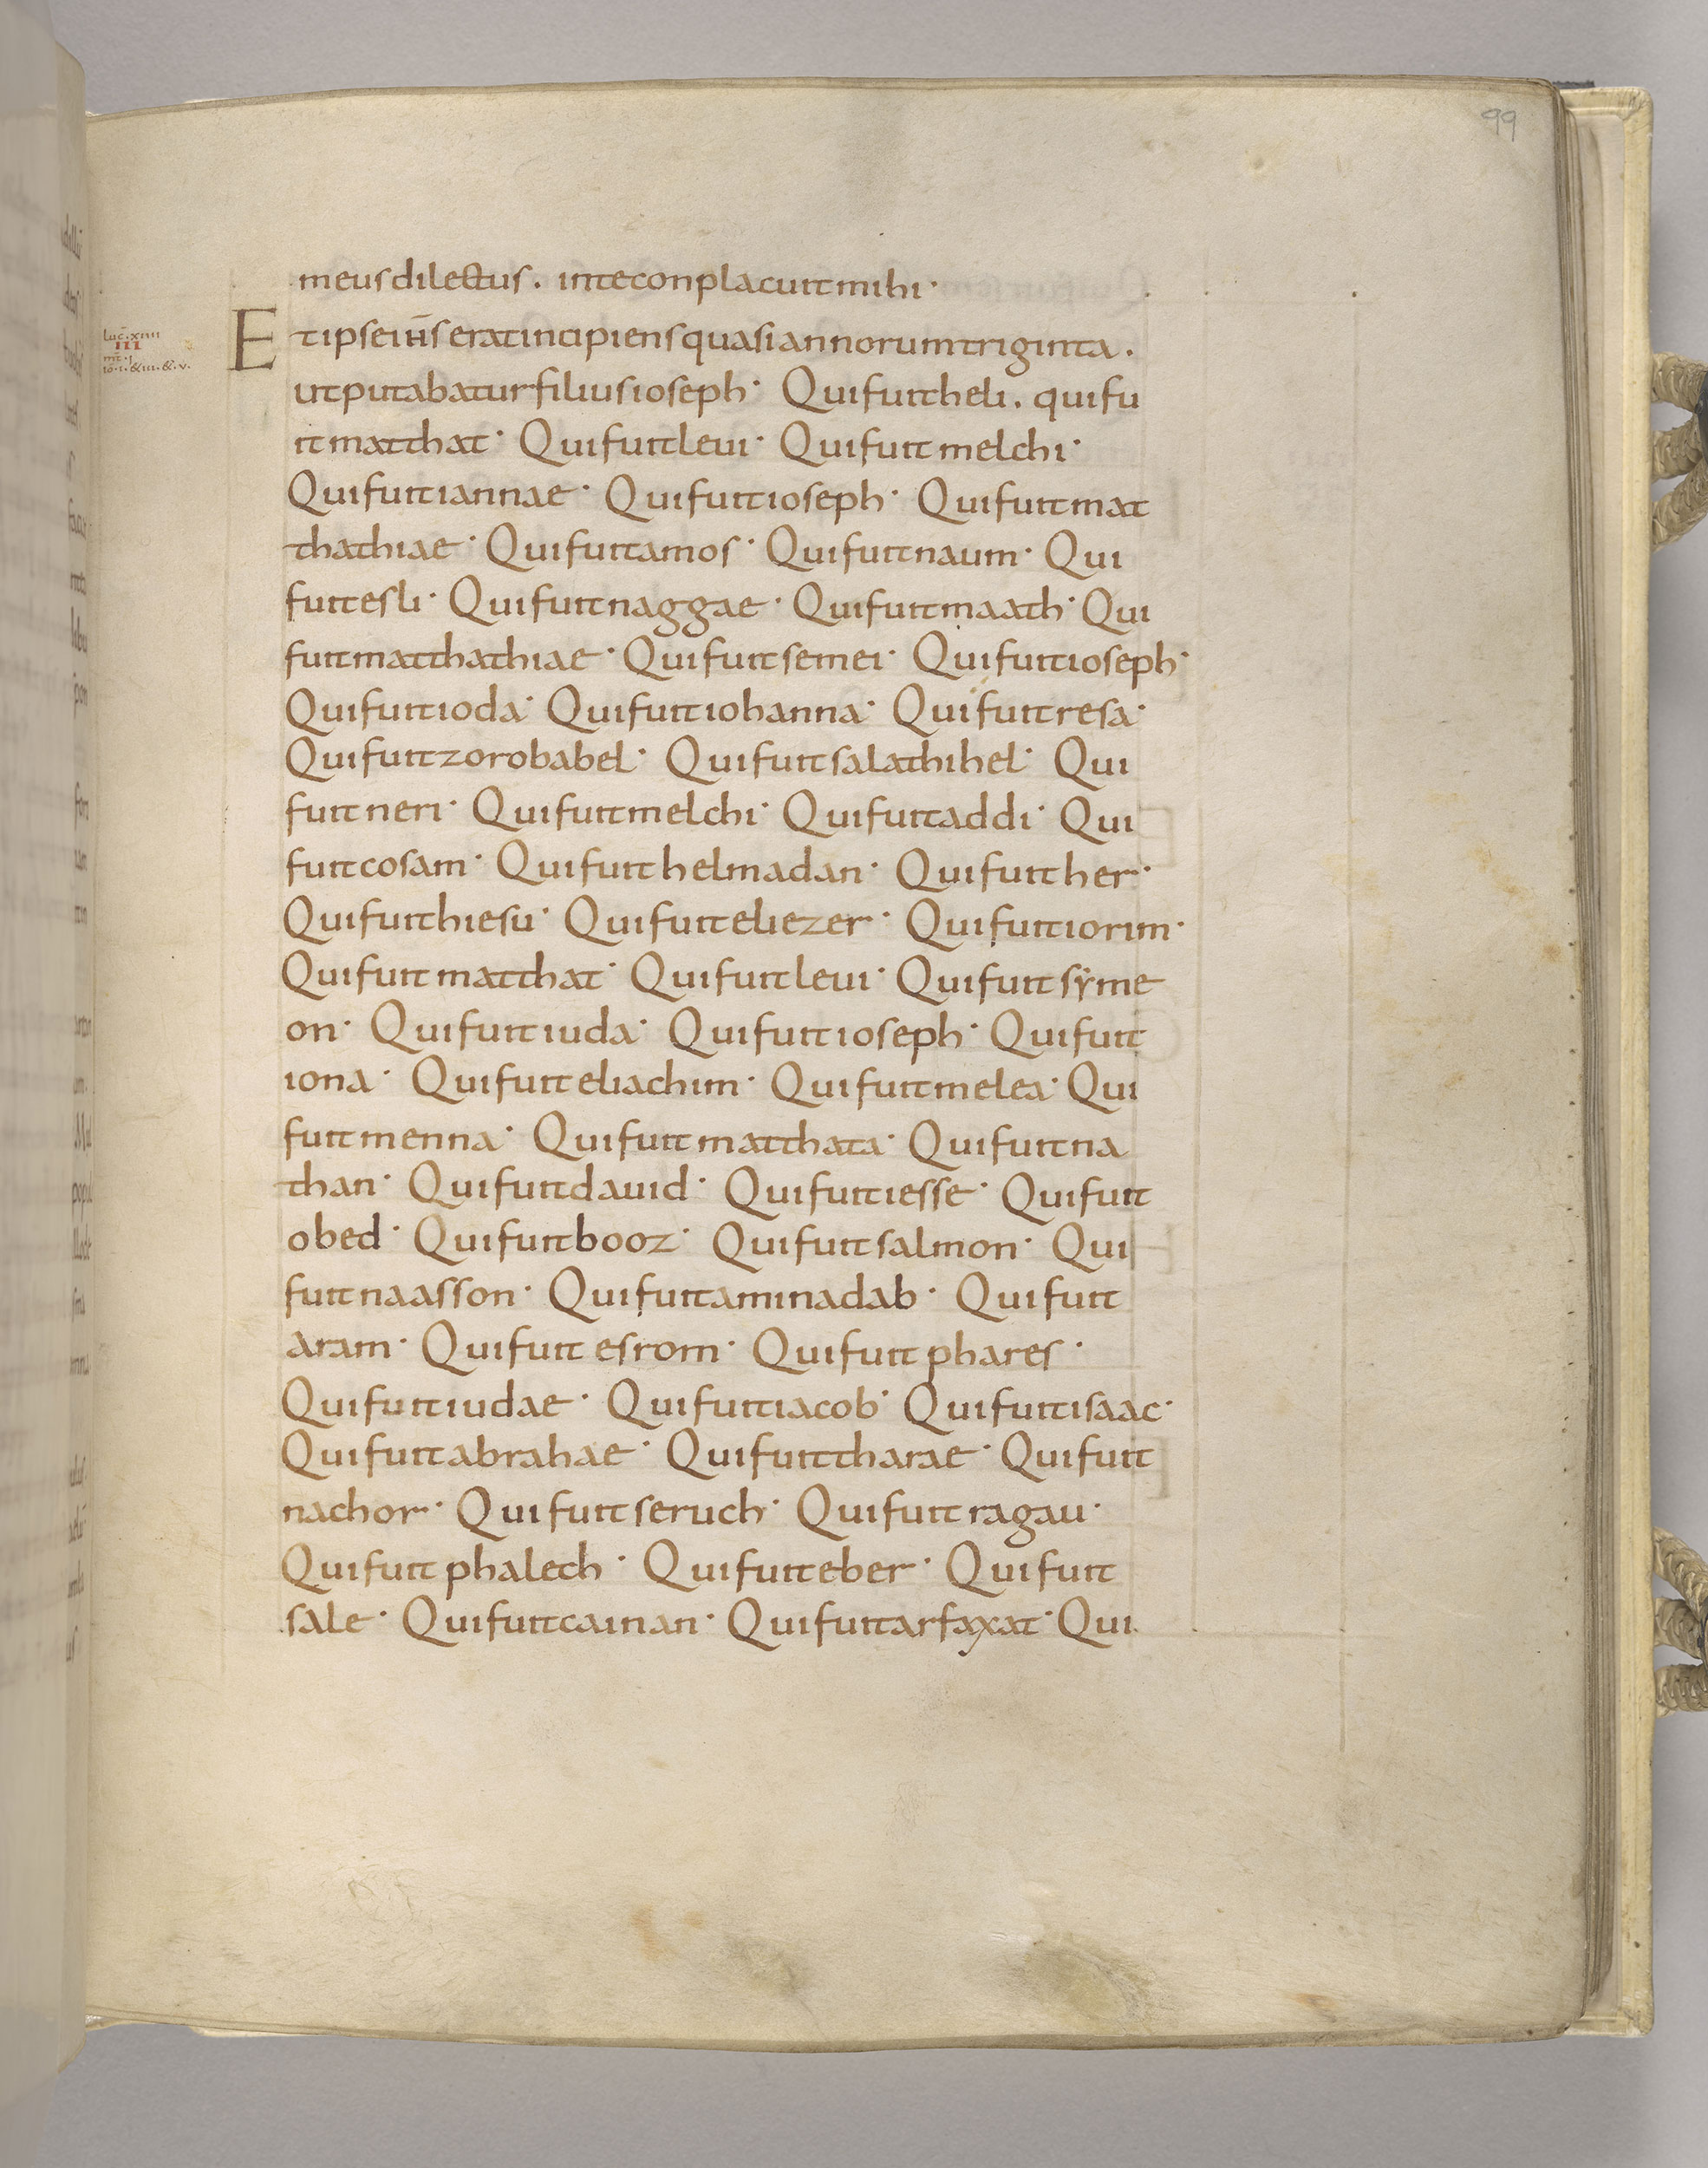 99
meus dilectus. in te conplacuit mihi·
luc̄. xiiii
III
mt̄. i
iō. i. & iii. &. v.
Et ipse ih̄s erat incipiens quasi annorum triginta.
ut putabatur filius ioseph· Qui fuit heli. qui fu
it matthat· Qui fuit leui· Qui fuit melchi·
Qui fuit iannae· Qui fuit ioseph· Qui fuit mat
thathiae· Qui fuit amos· Qui fuit naum· Qui
fuit esli· Qui fuit naggae· Qui fuit maath· Qui
fuit matthathiae· Qui fuit semei· Qui fuit ioseph·
Qui fuit ioda· Qui fuit iohanna· Qui fuit resa·
Qui fuit zorobabel· Qui fuit salathihel· Qui
fuit neri· Qui fuit melchi· Qui fuit addi· Qui
fuit cosam· Qui fuit helmadan· Qui fuit her·
Qui fuit hiesu· Qui fuit eliezer· Qui fuit iorim·
Qui fuit matthat· Qui fuit leui· Qui fuit sẏme
on· Qui fuit iuda· Qui fuit ioseph· Qui fuit
iona· Qui fuit eliachim· Qui fuit melea· Qui
fuit menna· Qui fuit matthata· Qui fuit na
than· Qui fuit dauid· Qui fuit iesse· Qui fuit
obed· Qui fuit booz· Qui fuit salmon· Qui
fuit naasson· Qui fuit aminadab· Qui fuit
aram· Qui fuit esrom· Qui fuit phares·
Qui fuit iudae· Qui fuit iacob· Qui fuit isaac·
Qui fuit abrahae· Qui fuit tharae· Qui fuit
nachor· Qui fuit seruch· Qui fuit ragau·
Qui fuit phalech· Qui fuit eber· Qui fuit
sale· Qui fuit cainan· Qui fuit arfaxat· Qui